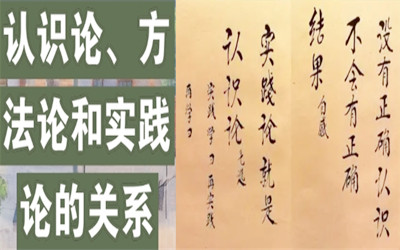 认识论、方
法论和实践
论的关系
没有正确认识
不会有正确
结果
实踐论就是
认识论
实践学习再实践
再学习